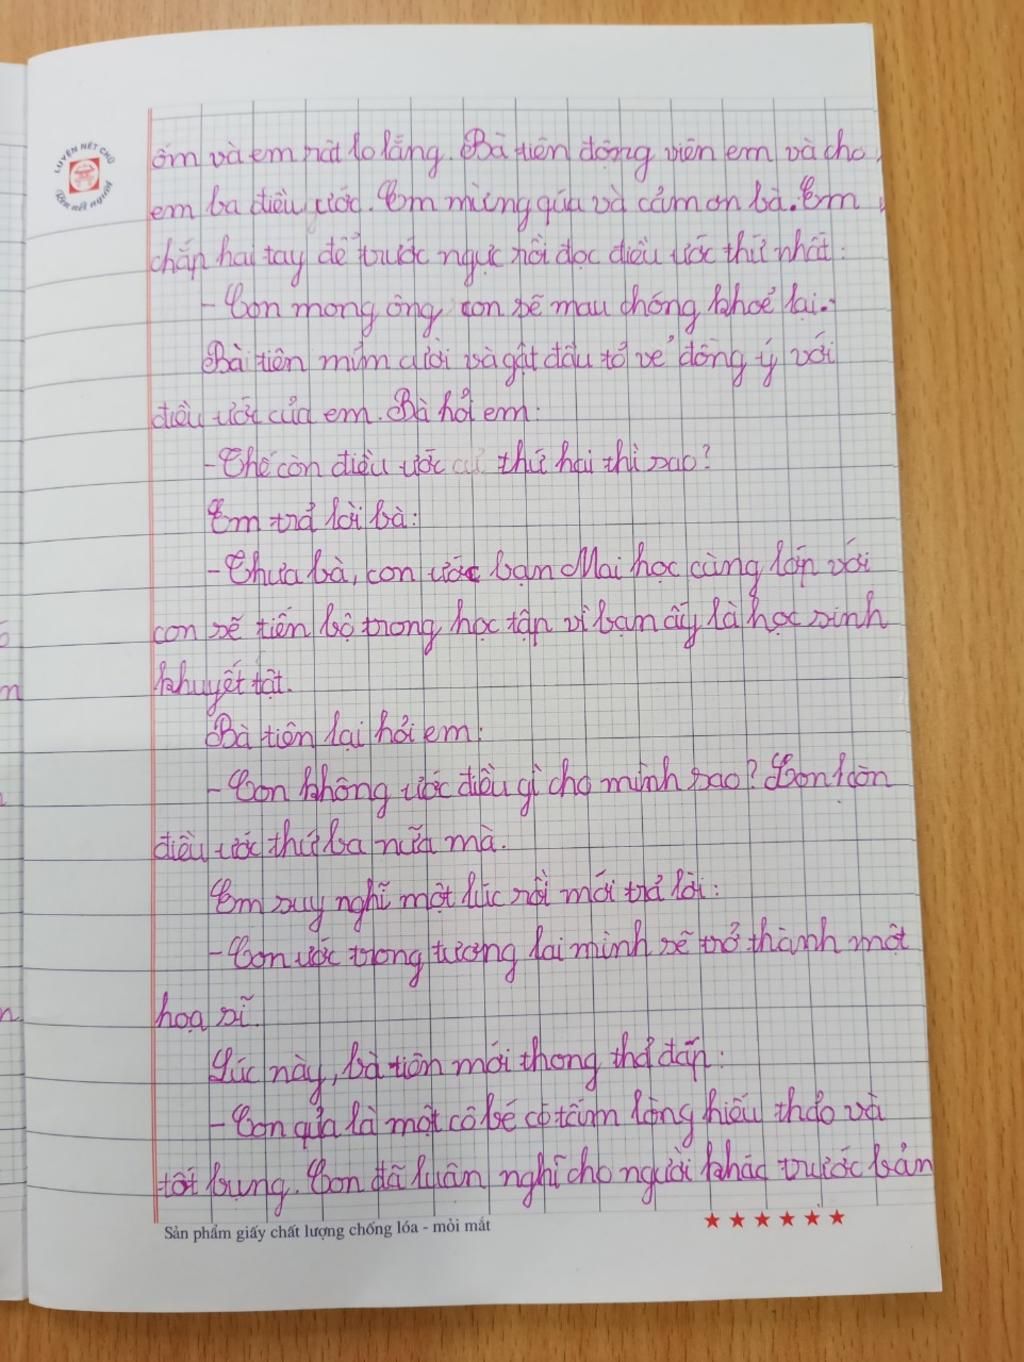 LUYỆN NẾT CHỮ
Rèn nết người
ốm và em rất lo lắng. Bà tiên động viên em và cho
em ba điều ước. Em mừng quá và cảm ơn bà. Em
chắp hai tay để trước ngực rồi đọc điều ước thứ nhất:
- Con mong ông con sẽ mau chóng khoẻ lại.
Bà tiên mỉm cười và gật đầu tỏ vẻ đồng ý với
điều ước của em. Bà hỏi em:
- Thế còn điều ước thứ hai thì sao?
Em trả lời bà:
- Thưa bà, con ước bạn Mai học cùng lớp với
con sẽ tiến bộ trong học tập vì bạn ấy là học sinh
khuyết tật.
Bà tiên lại hỏi em:
- Con không ước điều gì cho mình sao? Con còn
điều ước thứ ba nữa mà.
Em suy nghĩ một lúc rồi mới trả lời:
- Con ước trong tương lai mình sẽ trở thành một
hoạ sĩ.
Lúc này, bà tiên mới thong thả đáp:
- Con quả là một cô bé có tấm lòng hiếu thảo và
tốt bụng. Con đã luôn nghĩ cho người khác trước bản
Sản phẩm giấy chất lượng chống lóa - mỏi mắt